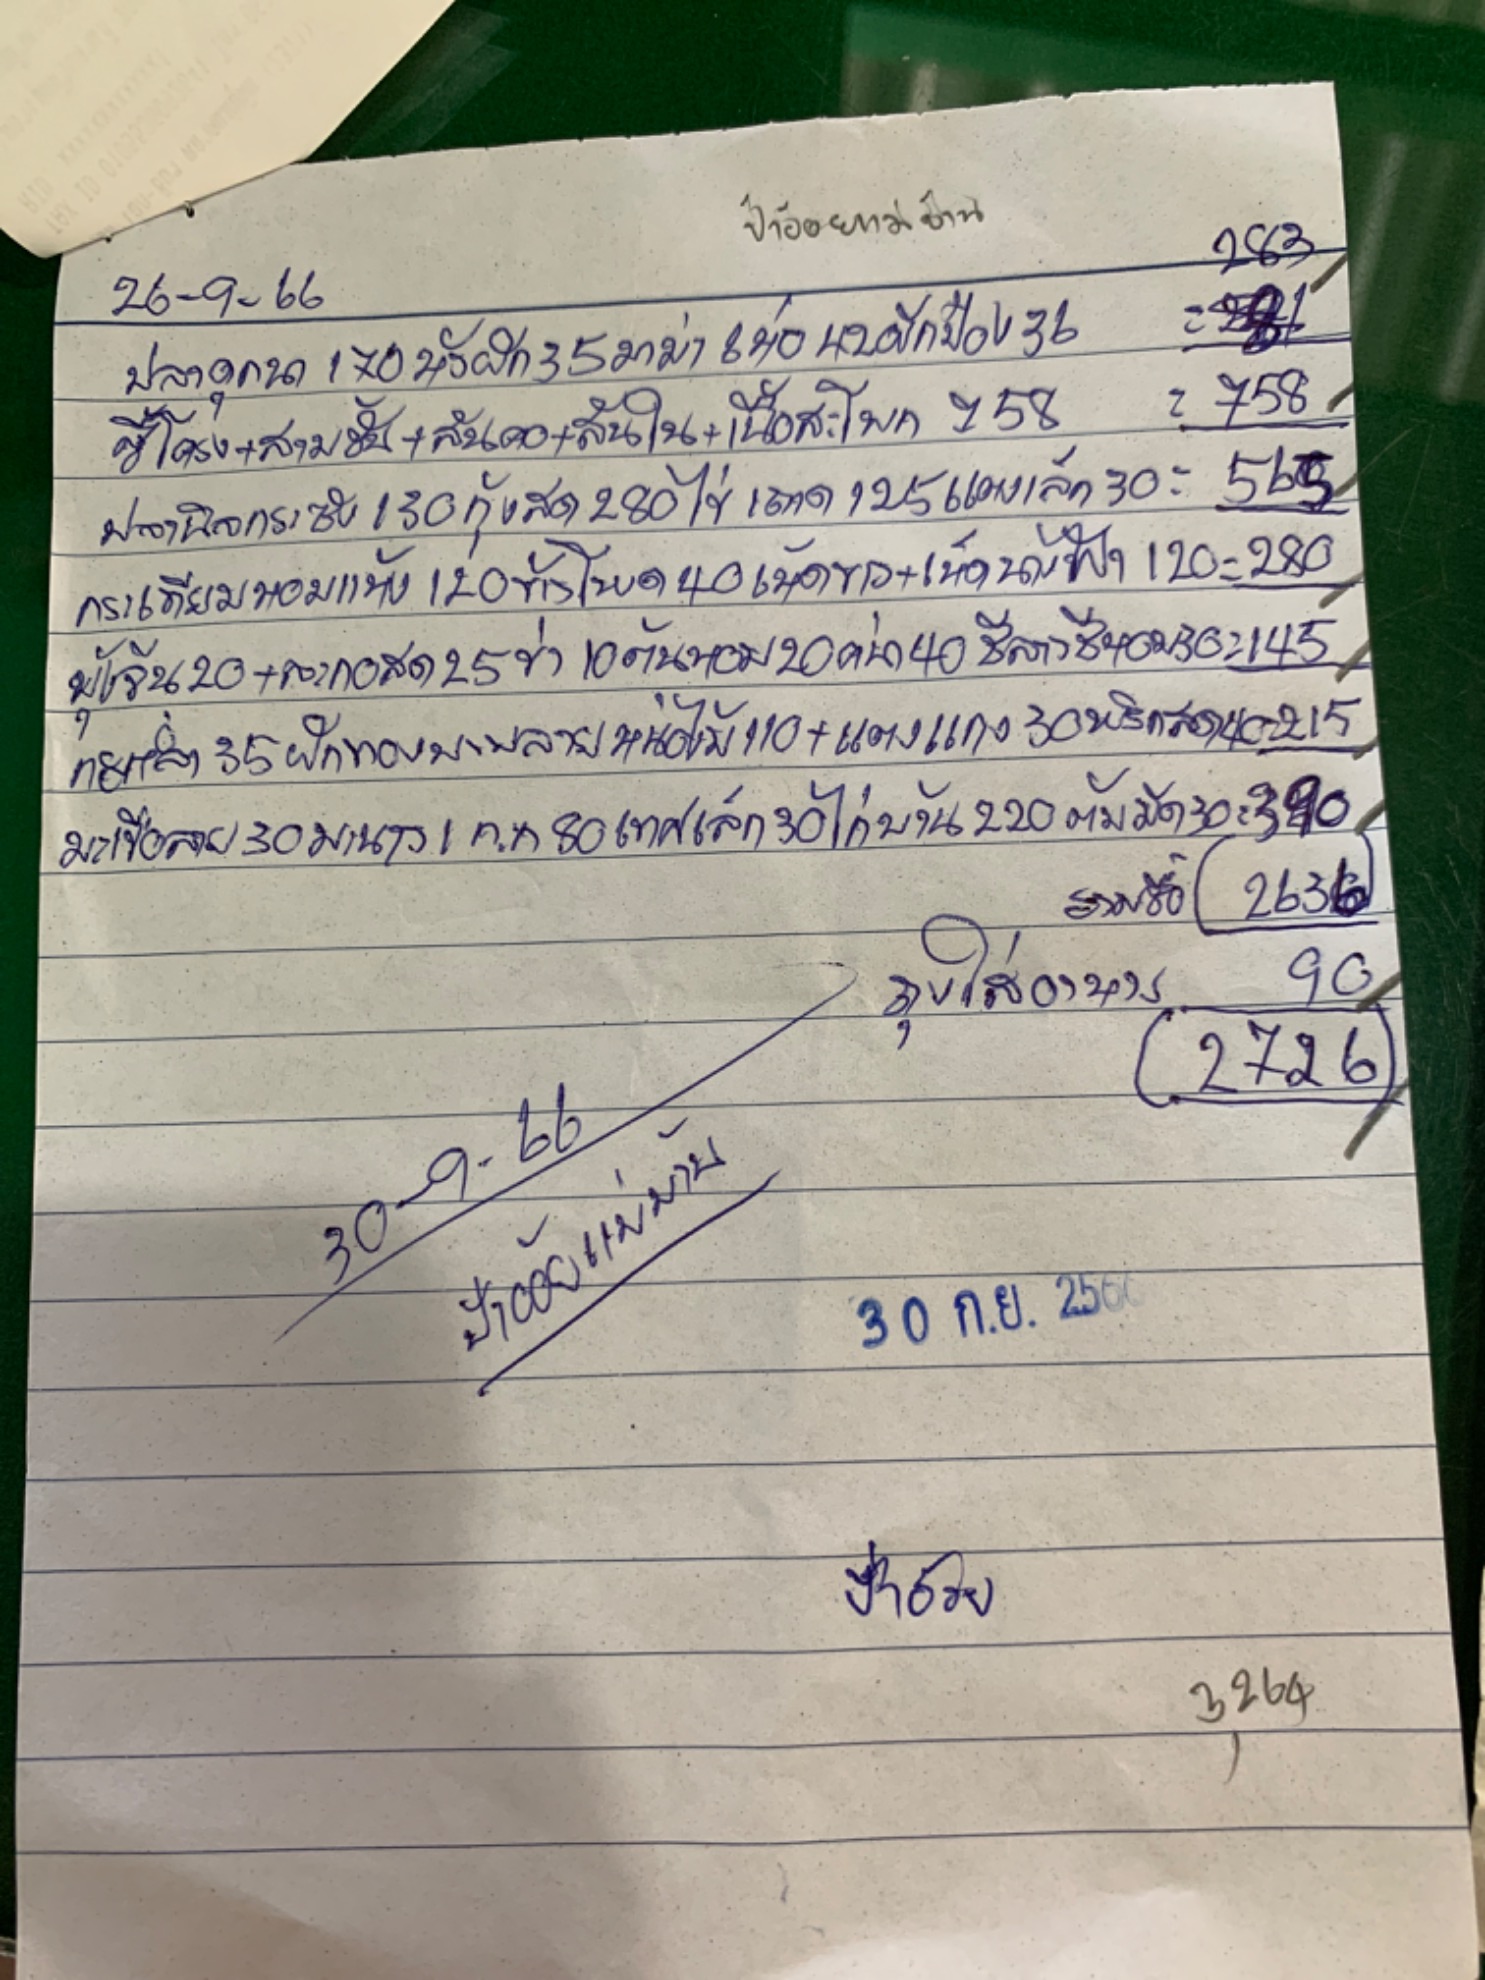 ป้าอ้อยแม่บ้าน
26-9-66
283
ปลาดุกนา 170 หัวผัก 35 มาม่า 6 ห่อ 42 ผักป๋อง 36 =
ซี่โครง+สามชั้น+สันคอ+สันใน+เนื้อสะโพก 758 = 758
ปลานิลกระชัง 130 กุ้งสด 280 ไข่ 1 ถาด 125 แตงเล็ก 30 = 565
กระเทียมหอมแห้ง 120 ข้าวโพด 40 เห็ดขาว+เห็ดนางฟ้า 120 = 280
ผุ้งจีน 20+มะกอสด 25 ข่า 10 ต้นหอม 20 คะน้า 40 ชีลาวชีหอม 30 = 145
กะหล่ำ 35 ฝักทอง หน่อไม้ 110+แตงแกง 30 พริกสด 40 = 215
มะเขือลาย 30 มะนาว 1 ก.ก 80 เทศเล็ก 30 ไก่บ้าน 220 ต้มมัด 30 = 390
รวมซื้อ (2636)
ถุงใส่อาหาร 90
(2726)
30-9-66
ป้าอ้อยแม่บ้าน
30 ก.ย. 2566
ป้าอ้วย
3264